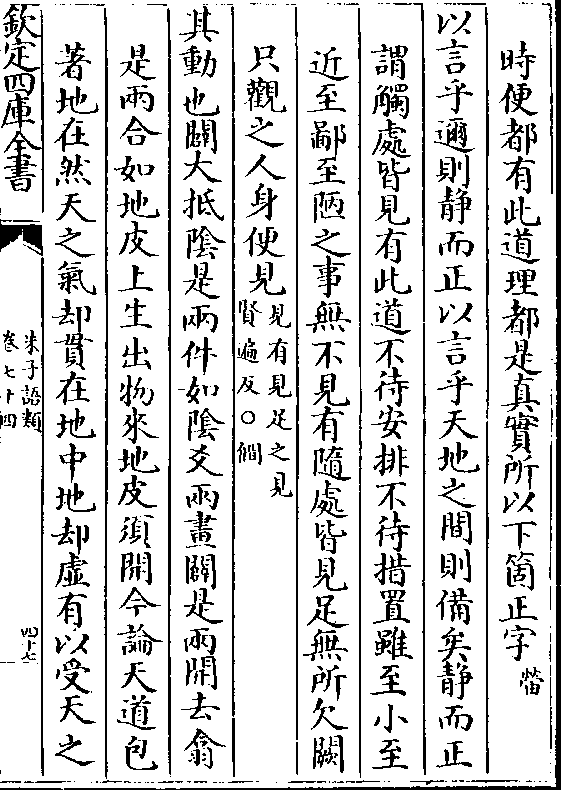 時便都有此道理都是真實所以下箇正字㽦
以言乎邇則静而正以言乎天地之間則備矣静而正
謂觸處皆見有此道不待安排不待措置雖至小至
近至鄙至陋之事無不見有隨處皆見足無所欠闕
只觀之人身便見見有見足之見
賢遍反○僩
其動也闢大抵陰是兩件如陰爻兩畫闢是兩開去翕
是兩合如地皮上生出物來地皮須開今論天道包
著地在然天之氣却貫在地中地却虛有以受天之
欽定四庫全書
朱子語類
卷七十四
四十七